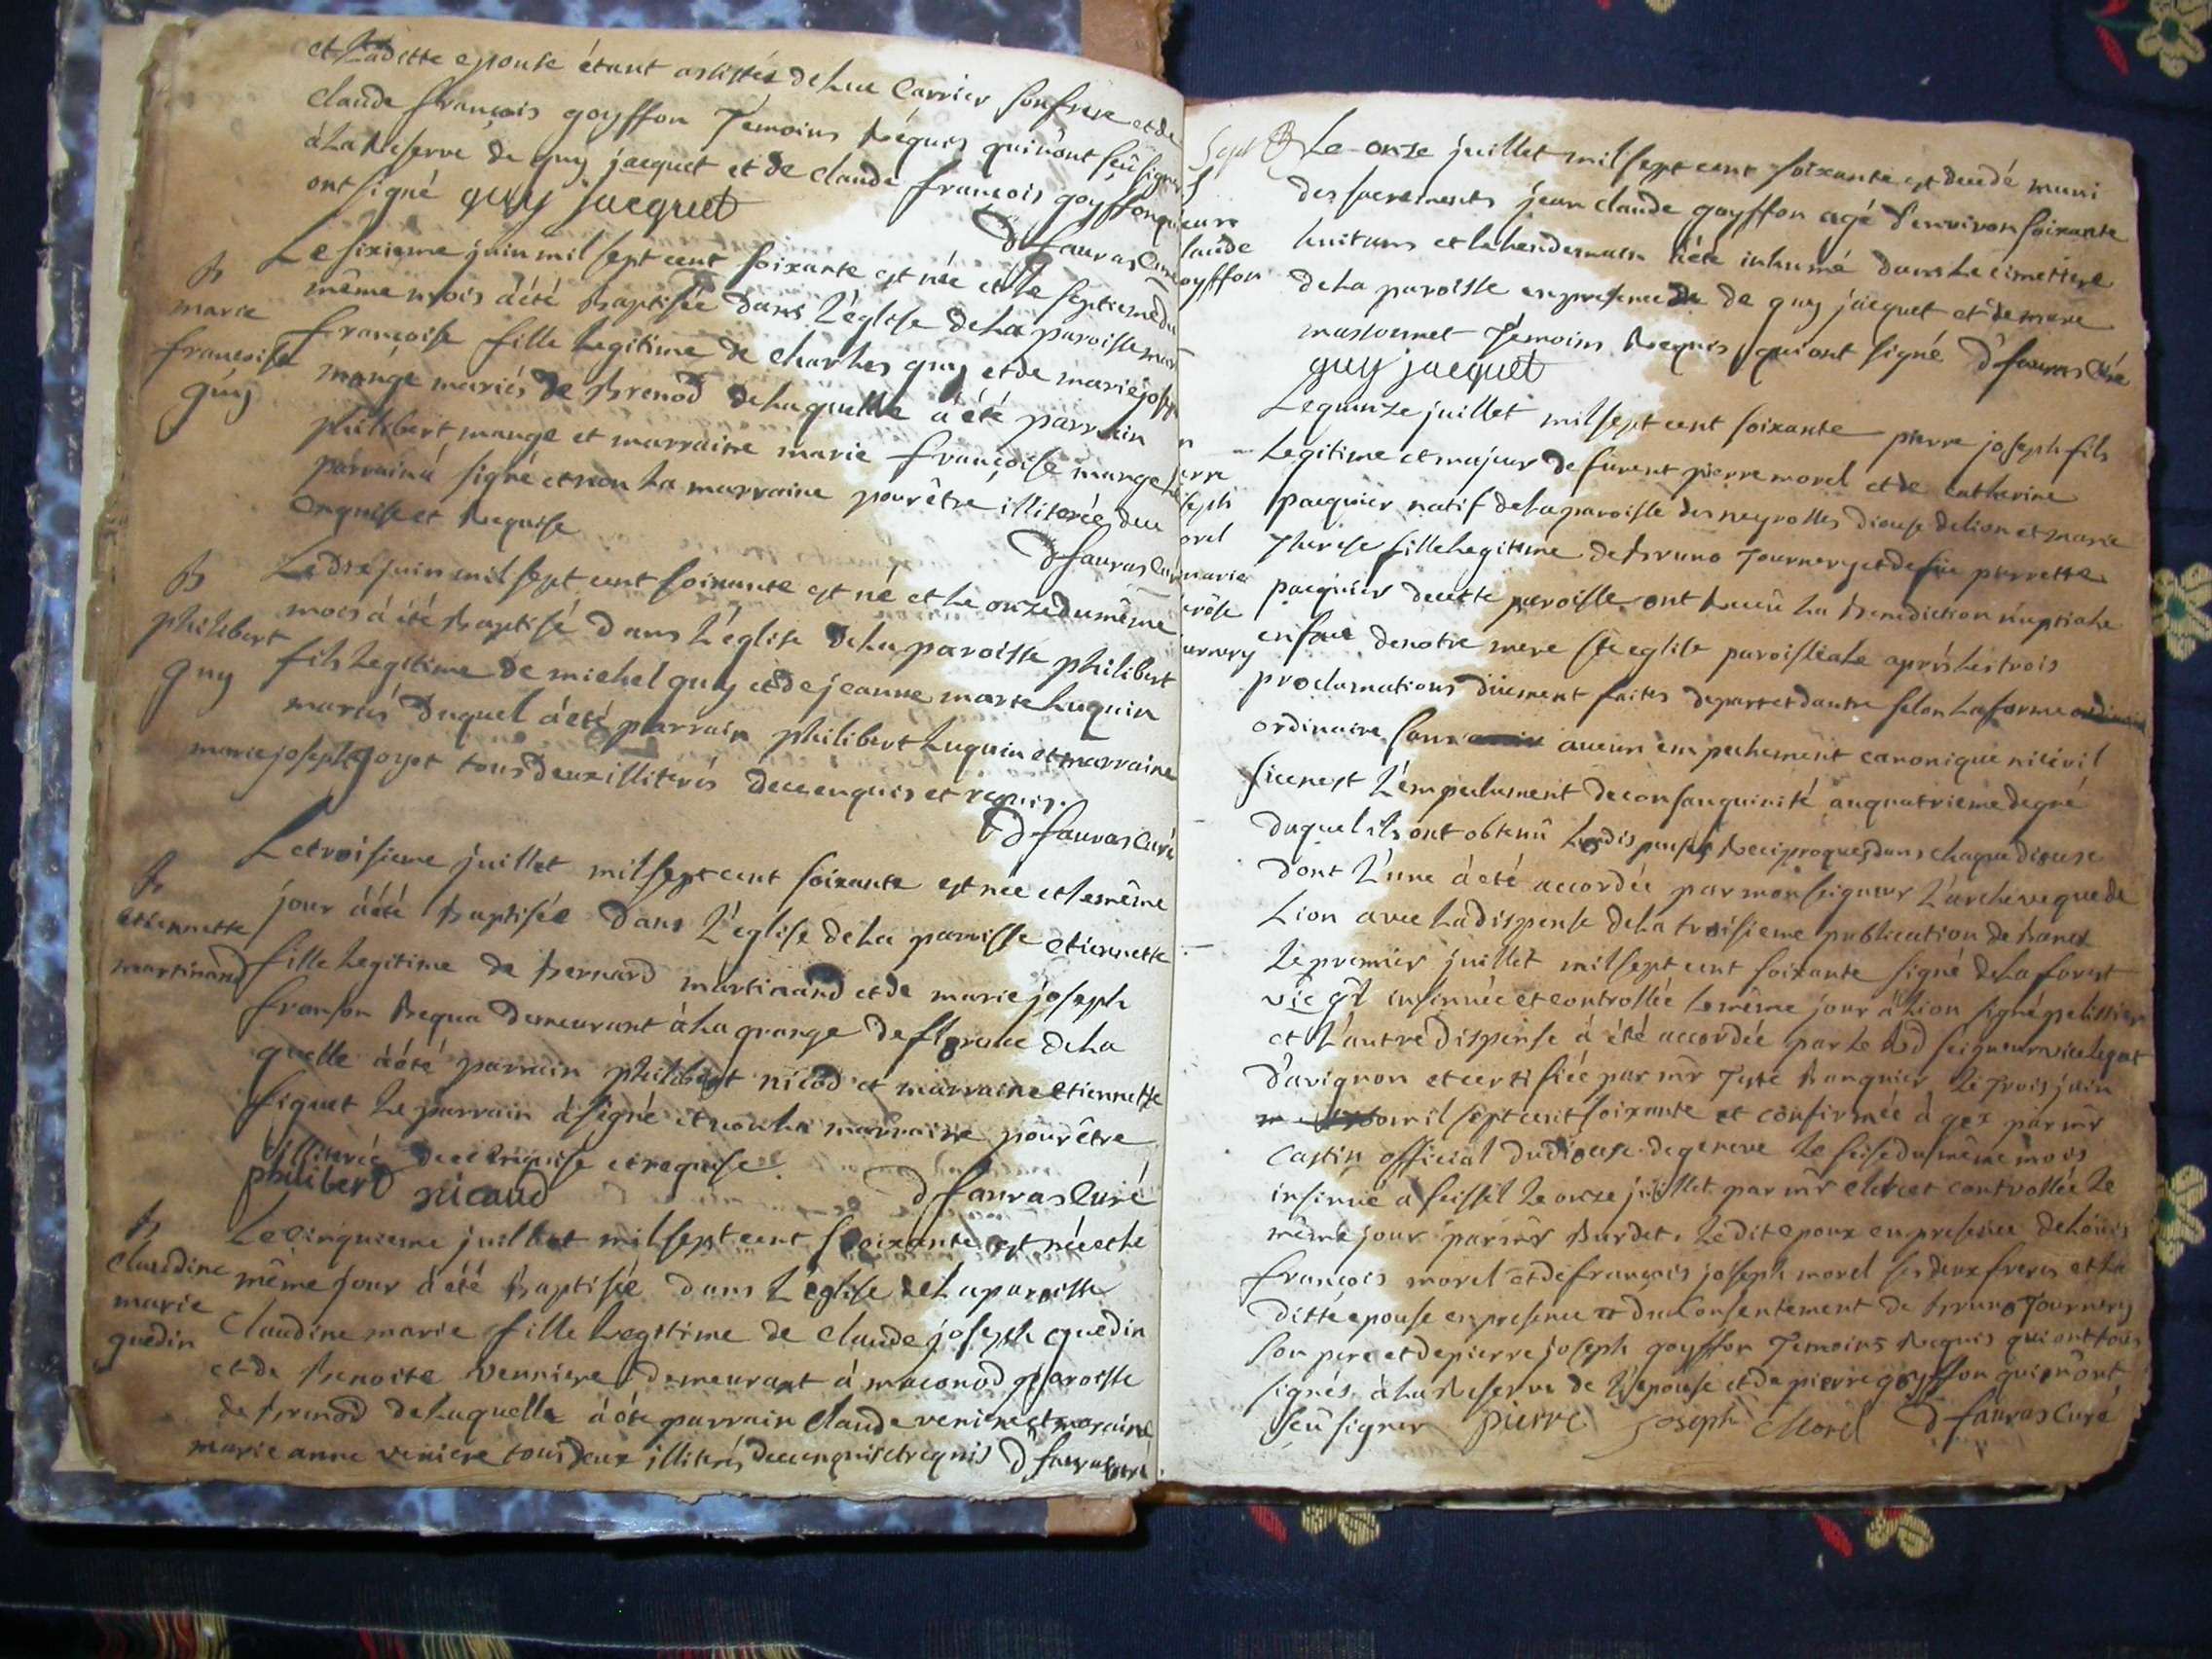 et Laditte epouse étant assistée de Luc Carrier son frere et de
claude françois goyffon Temoins Requis qui n'ont seû signer
à La Reserve de guy jacquet et de claude françois goyffon qui
ont signé guy jacquet
D fauras Curé
B
marie
françoise
guy
Le sixieme juin mil sept cent soixante est née et le septieme du
même mois à été Baptisée dans L'église de La paroisse marie
françoise fille Legitime de charles guy et de marie joseph
mange mariés de Brenod de Laquelle à été parrain
philibert mange et marraine marie françoise mange Le
parrain à signé et non La marraine pour être illiterée de ce
enquise et Requise
D fauras Curé
B
philibert
guy
Le dix juin mil sept cent soixante est né et Le onze du même
mois à été Baptisé dans L'église de La paroisse philibert
fils Legitime de michel guy et de jeanne marie Luquin
mariés duquel à été parrain philibert Luquin et marraine
marie josephe goyet tous deux illiterés de ce enquis et requis.
D fauras Curé
B
etiennette
martinand
Le troisieme juillet mil sept cent soixante est née et le même
jour à été Baptisée dans L'église de La paroisse etiennette
fille Legitime de Bernard martinand et de marie joseph
demeurant à La grange de florence de La
quelle à été parrain philibert nicod et marraine etiennette
figuet Le parrain à signé et non La marraine pour être
illiterée de ce enquise et requise
philibert nicaud
D fauras Curé
B
claudine
marie
guedin
Le cinquieme juillet mil sept cent soixante est née et le
même jour à été Baptisée dans L'église de La paroisse
claudine marie fille Legitime de claude joseph guedin
et de Benoite Venniere demeurant à maconod paroisse
de Brenod de Laquelle à été parrain claude veniere et maraine
marie anne veniere tous deux illiterés de ce enquis et requis D fauras curé
Sept
laude
oyffon
Le onze juillet mil sept cent soixante est decedé muni
des sacrements jean claude goyffon agé d'environ soixante
huit ans et le Lendemain à été inhumé dans Le cimettiere
de La paroisse en presence de guy jacquet et de
massonnet Temoins Requis qui ont signé D fauras Curé
guy jacquet
erre
seph
orel
marie
erese
ournery
Le quinze juillet mil sept cent soixante pierre joseph fils
Legitime et majeur de furent pierre morel et de catherine
pacquier natif de La paroisse des neyrolles diocese de Lion et marie
therese fille Legitime de Bruno Tournery et de feue pierrette
pacquier de cette paroisse ont Receû La Benediction nuptiale
en face de notre mere Ste eglise paroissiale aprés Les trois
proclamations düement faites de part et dautre selon La forme
ordinaire sans aucun empechement canonique ni civil
si ce n'est L'empechement de consanguinité au quatrieme degré
duquel ils ont obtenû Les dispenses Reciproques dans chaque diocese
dont L'une à été accordée par monseigneur L'archeveque de
Lion avec La dispense de La troisieme publication de Bancs
Le premier juillet mil sept cent soixante signé de La forest
vic gñl insinuée et controllée Le même jour à Lion signé pelissier
et L'autre dispense à été accordée par Le Rd seigneur vice Legat
d'avignon et certifiée par mr Juste Banquier Le trois juin
mil sept cent soixante et confirmée à gex par mr
Castin official du diocese de geneve Le seise du même mois
insinué a seissel Le onze juillet par mr et controllée Le
même jour par mr Burdet. Le dit epoux en presence de Loüis
françois morel et de françois joseph morel ses deux freres et La
ditte epouse en presence et du Consentement de Bruno Tournery
son pere et de pierre joseph goyffon Temoins Requis qui ont tous
signés à La Reserve de L'epouse et de pierre goyffon qui n'ont
seû signer pierre joseph Morel D fauras Curé